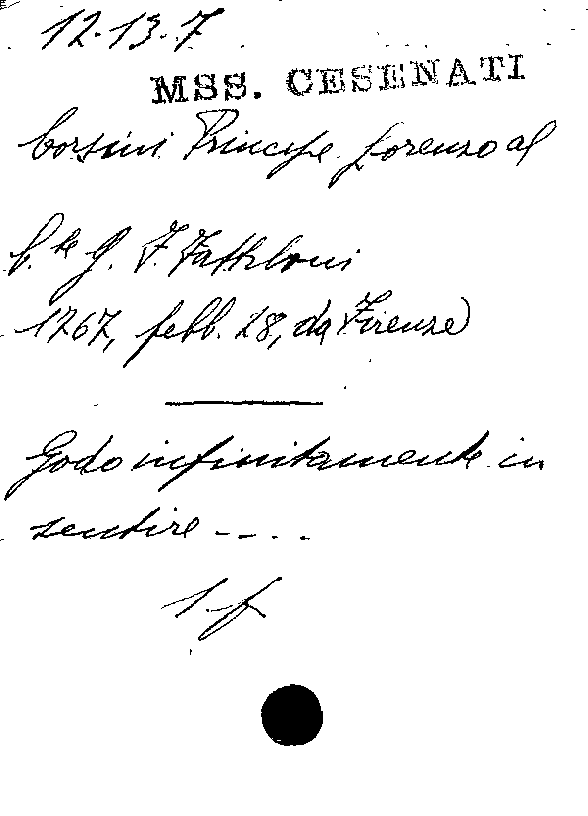 12.13.7
MSS. CESENATI
Corsini Principe Lorenzo al
C.te G. F. Fattiboni
1767, febb. 28, da Firenze
Godo infinitamente in
sentire - - . .
1. f